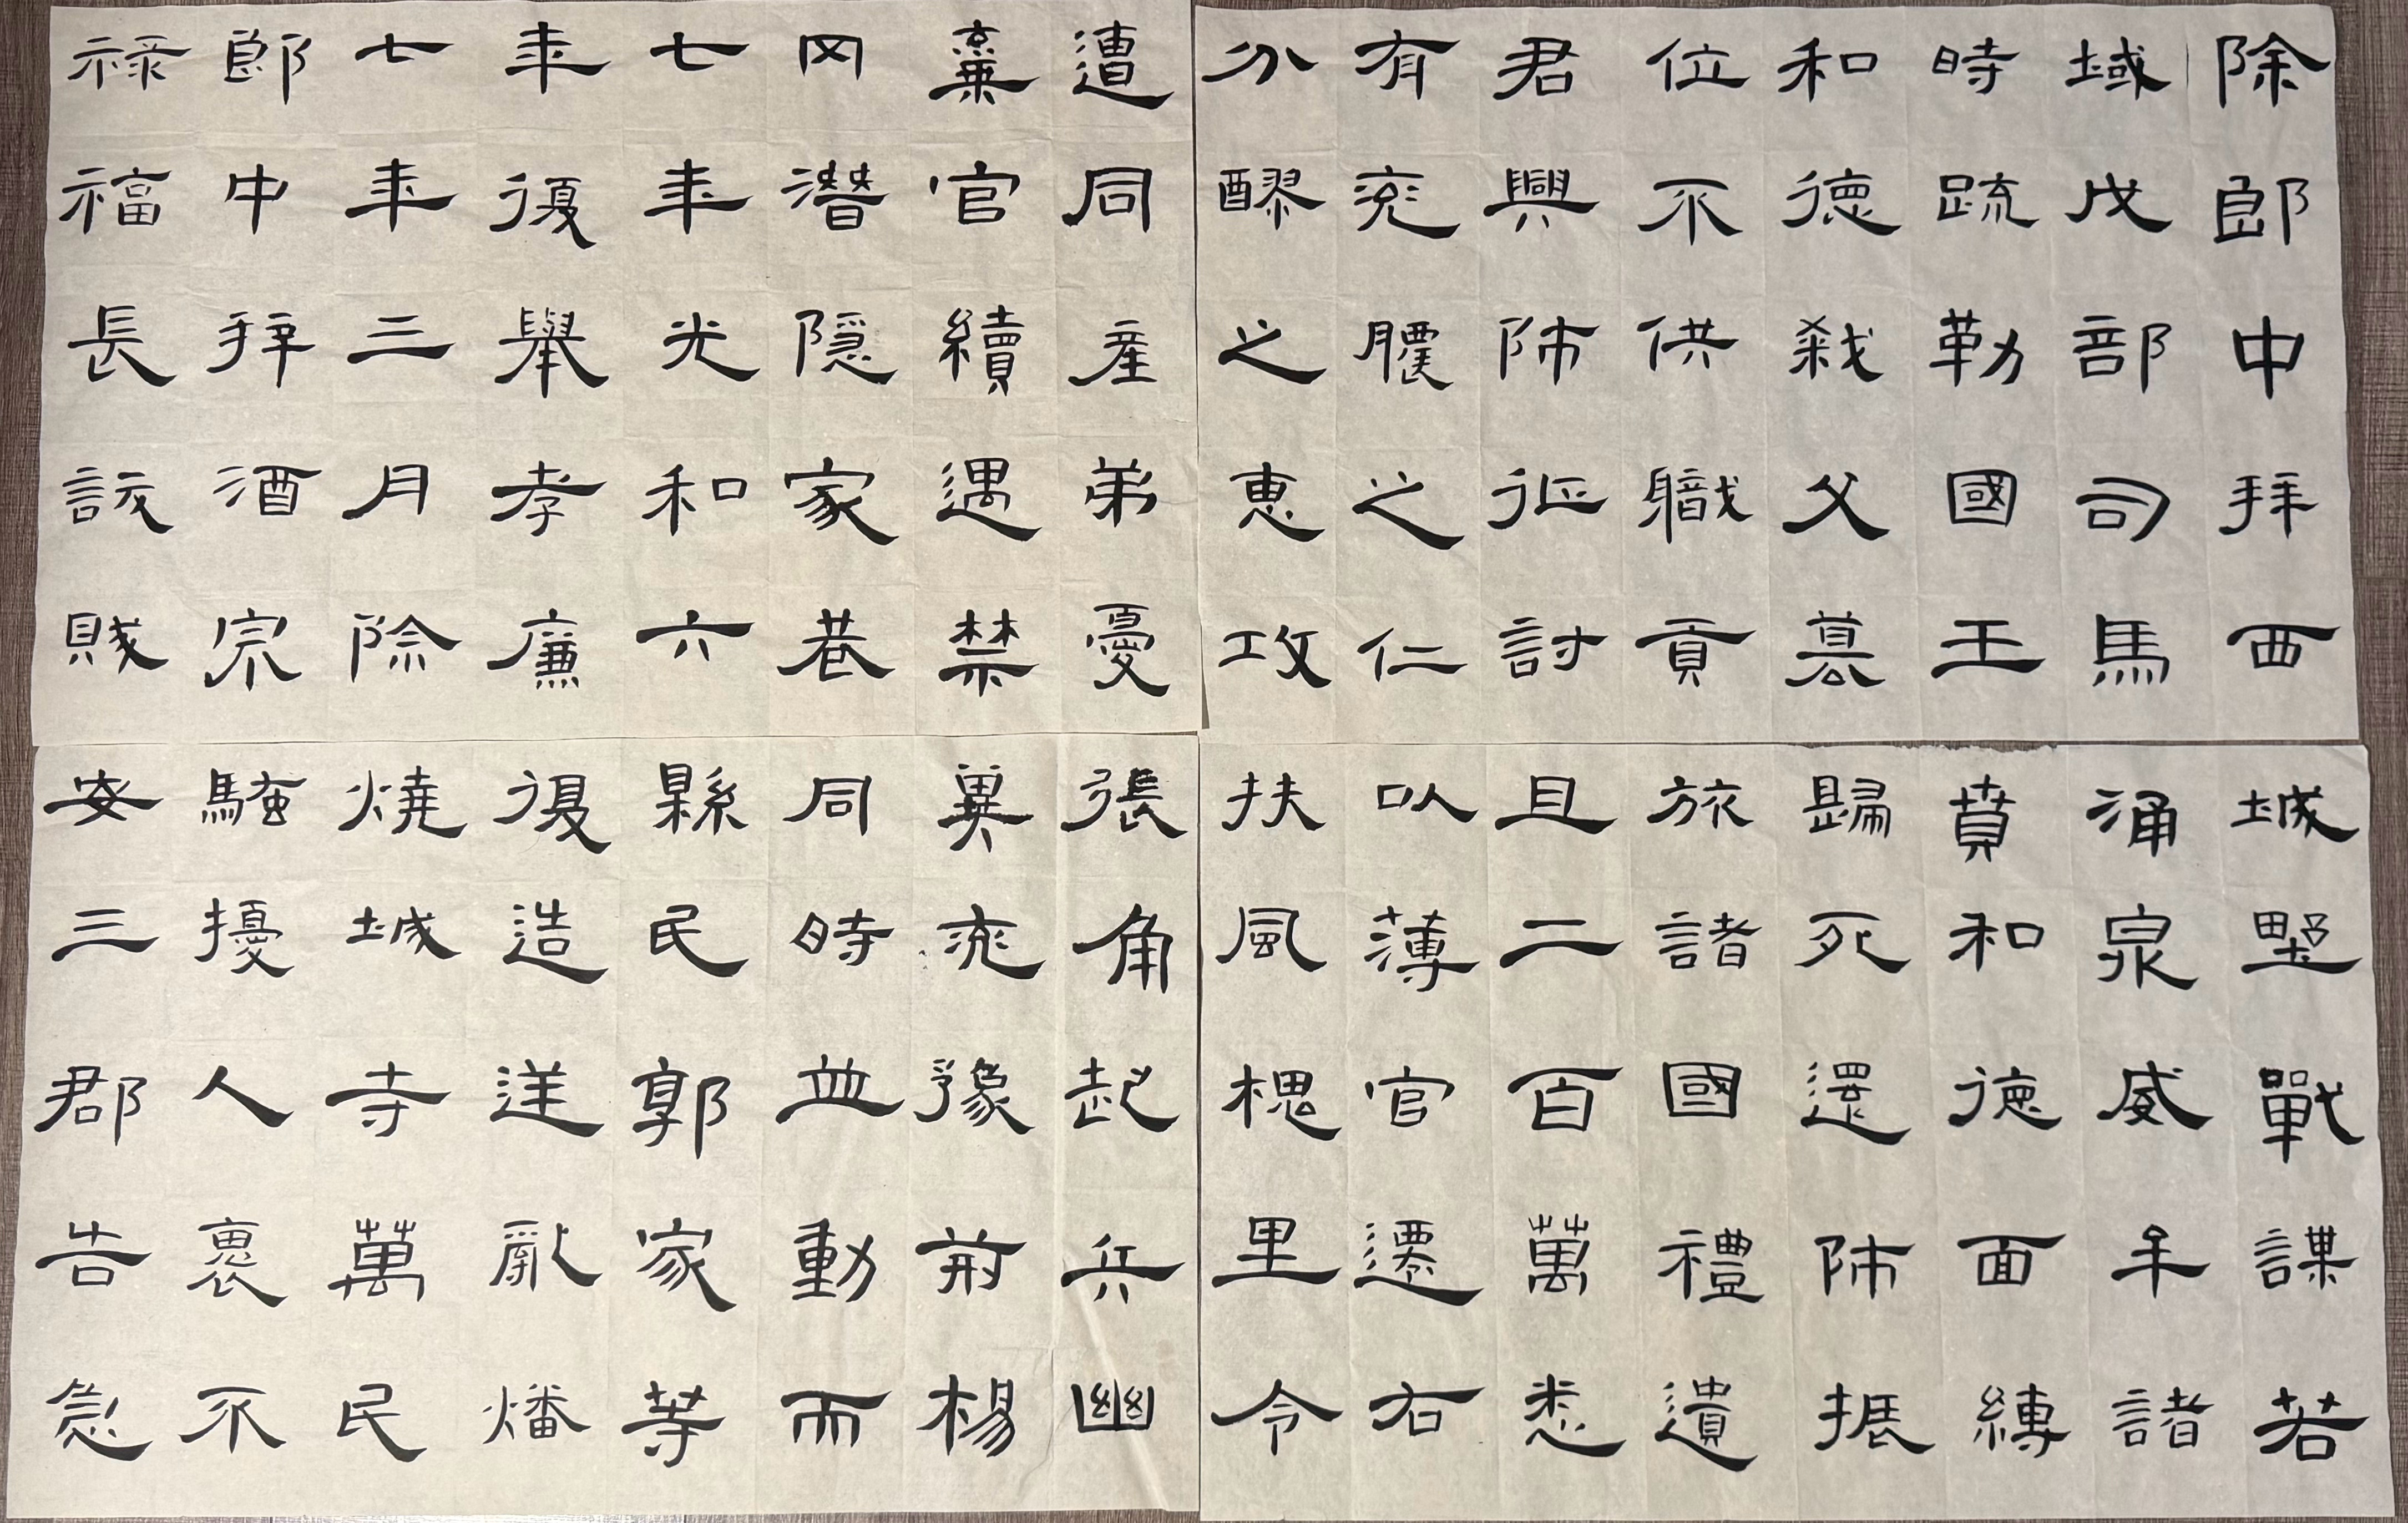 除郎中拜西
域戊部司馬
時疏勒國王
和德弒父篡
位不供職貢
君興師征討
有兗膿之仁
分醪之惠攻
城野戰謀若
涌泉威牟諸
賁和德面縛
歸死還師振
旅諸國禮遺
且二百萬悉
以薄官遷右
扶風槐里令
遭同產弟憂
棄官續遇禁
网潛隱家巷
七年光和六
年復舉孝廉
七年三月除
郎中拜酒泉
祿福長訞賊
張角起兵幽
冀兗豫荊楊
同時並動而
縣民郭家等
復造逆亂燔
燒城寺萬民
騷擾人裏不
安三郡告急